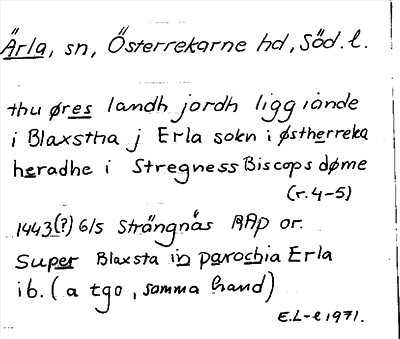 Ärla, sn, Österrekarne hd, Söd. l.
thu øres landh jordh ligg iande
i Blaxstha j Erla sokn i østherreka
heradhe i Stregness Biscops døme
(r. 4-5)
1443(?) 6/5 Strängnäs RAp or.
Super Blaxsta in parochia Erla
ib. (a tgo, samma hand)
E.L-e 1971.